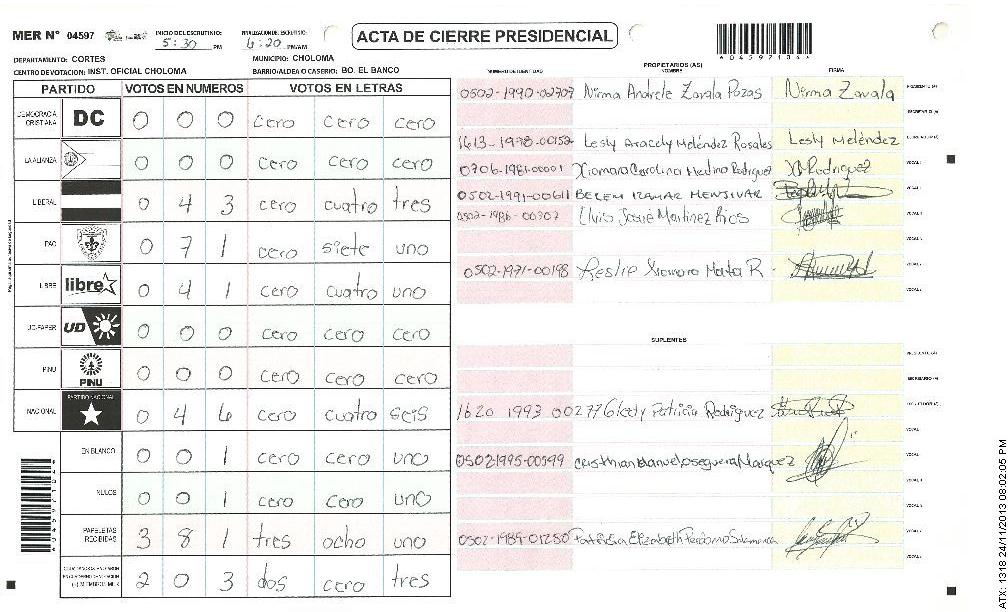 MER N° 04597
INICIO DEL ESCRUTINIO: 5:30 PM
FINALIZACION DEL ESCRUTINIO: 6:20 PM/AM
ACTA DE CIERRE PRESIDENCIAL
*045971064*
DEPARTAMENTO: CORTES
MUNICIPIO: CHOLOMA
CENTRO DE VOTACION: INST. OFICIAL CHOLOMA
BARRIO/ALDEA O CASERIO: BO. EL BANCO
PARTIDO VOTOS EN NUMEROS VOTOS EN LETRAS
DEMOCRACIA CRISTIANA DC 0 0 0 cero cero cero
LA ALIANZA 0 0 0 cero cero cero
LIBERAL 0 4 3 cero cuatro tres
PAC 0 7 1 cero siete uno
LIBRE libre 0 4 1 cero cuatro uno
UD-FAPER UD 0 0 0 cero cero cero
PINU PINU 0 0 0 cero cero cero
NACIONAL PARTIDO NACIONAL 0 4 6 cero cuatro seis
EN BLANCO 0 0 1 cero cero uno
NULOS 0 0 1 cero cero uno
PAPELETAS RECIBIDAS 3 8 1 tres ocho uno
2 0 3 dos cero tres
PROPIETARIOS (AS)
NUMERO DE IDENTIDAD NOMBRE FIRMA
0502-1990-02709 Nirma Andrele Zavala Pozas Nirma Zavala
1613-1998-00152 Lesly Aracely Meléndez Rosales Lesly Meléndez
0706-1981-00001 Xiomara Carolina Medina Rodriguez X Rodriguez
0502-1991-00611 BELEM IZAMAR MENJIVAR
0502-1986-00307 Josué Martinez Rios
0502-1971-00198 Reslie Xiomara Mata R.
SUPLENTES
1620 1993 00277 Gledy Patricia Rodriguez
0502-1995-00599 Cristhian Manuel Joseguera Marquez
0502-1989-01250 Patricia Elizabeth Perdomo Salamanca
ATX: 1318 24/11/2013 08:02:05 PM